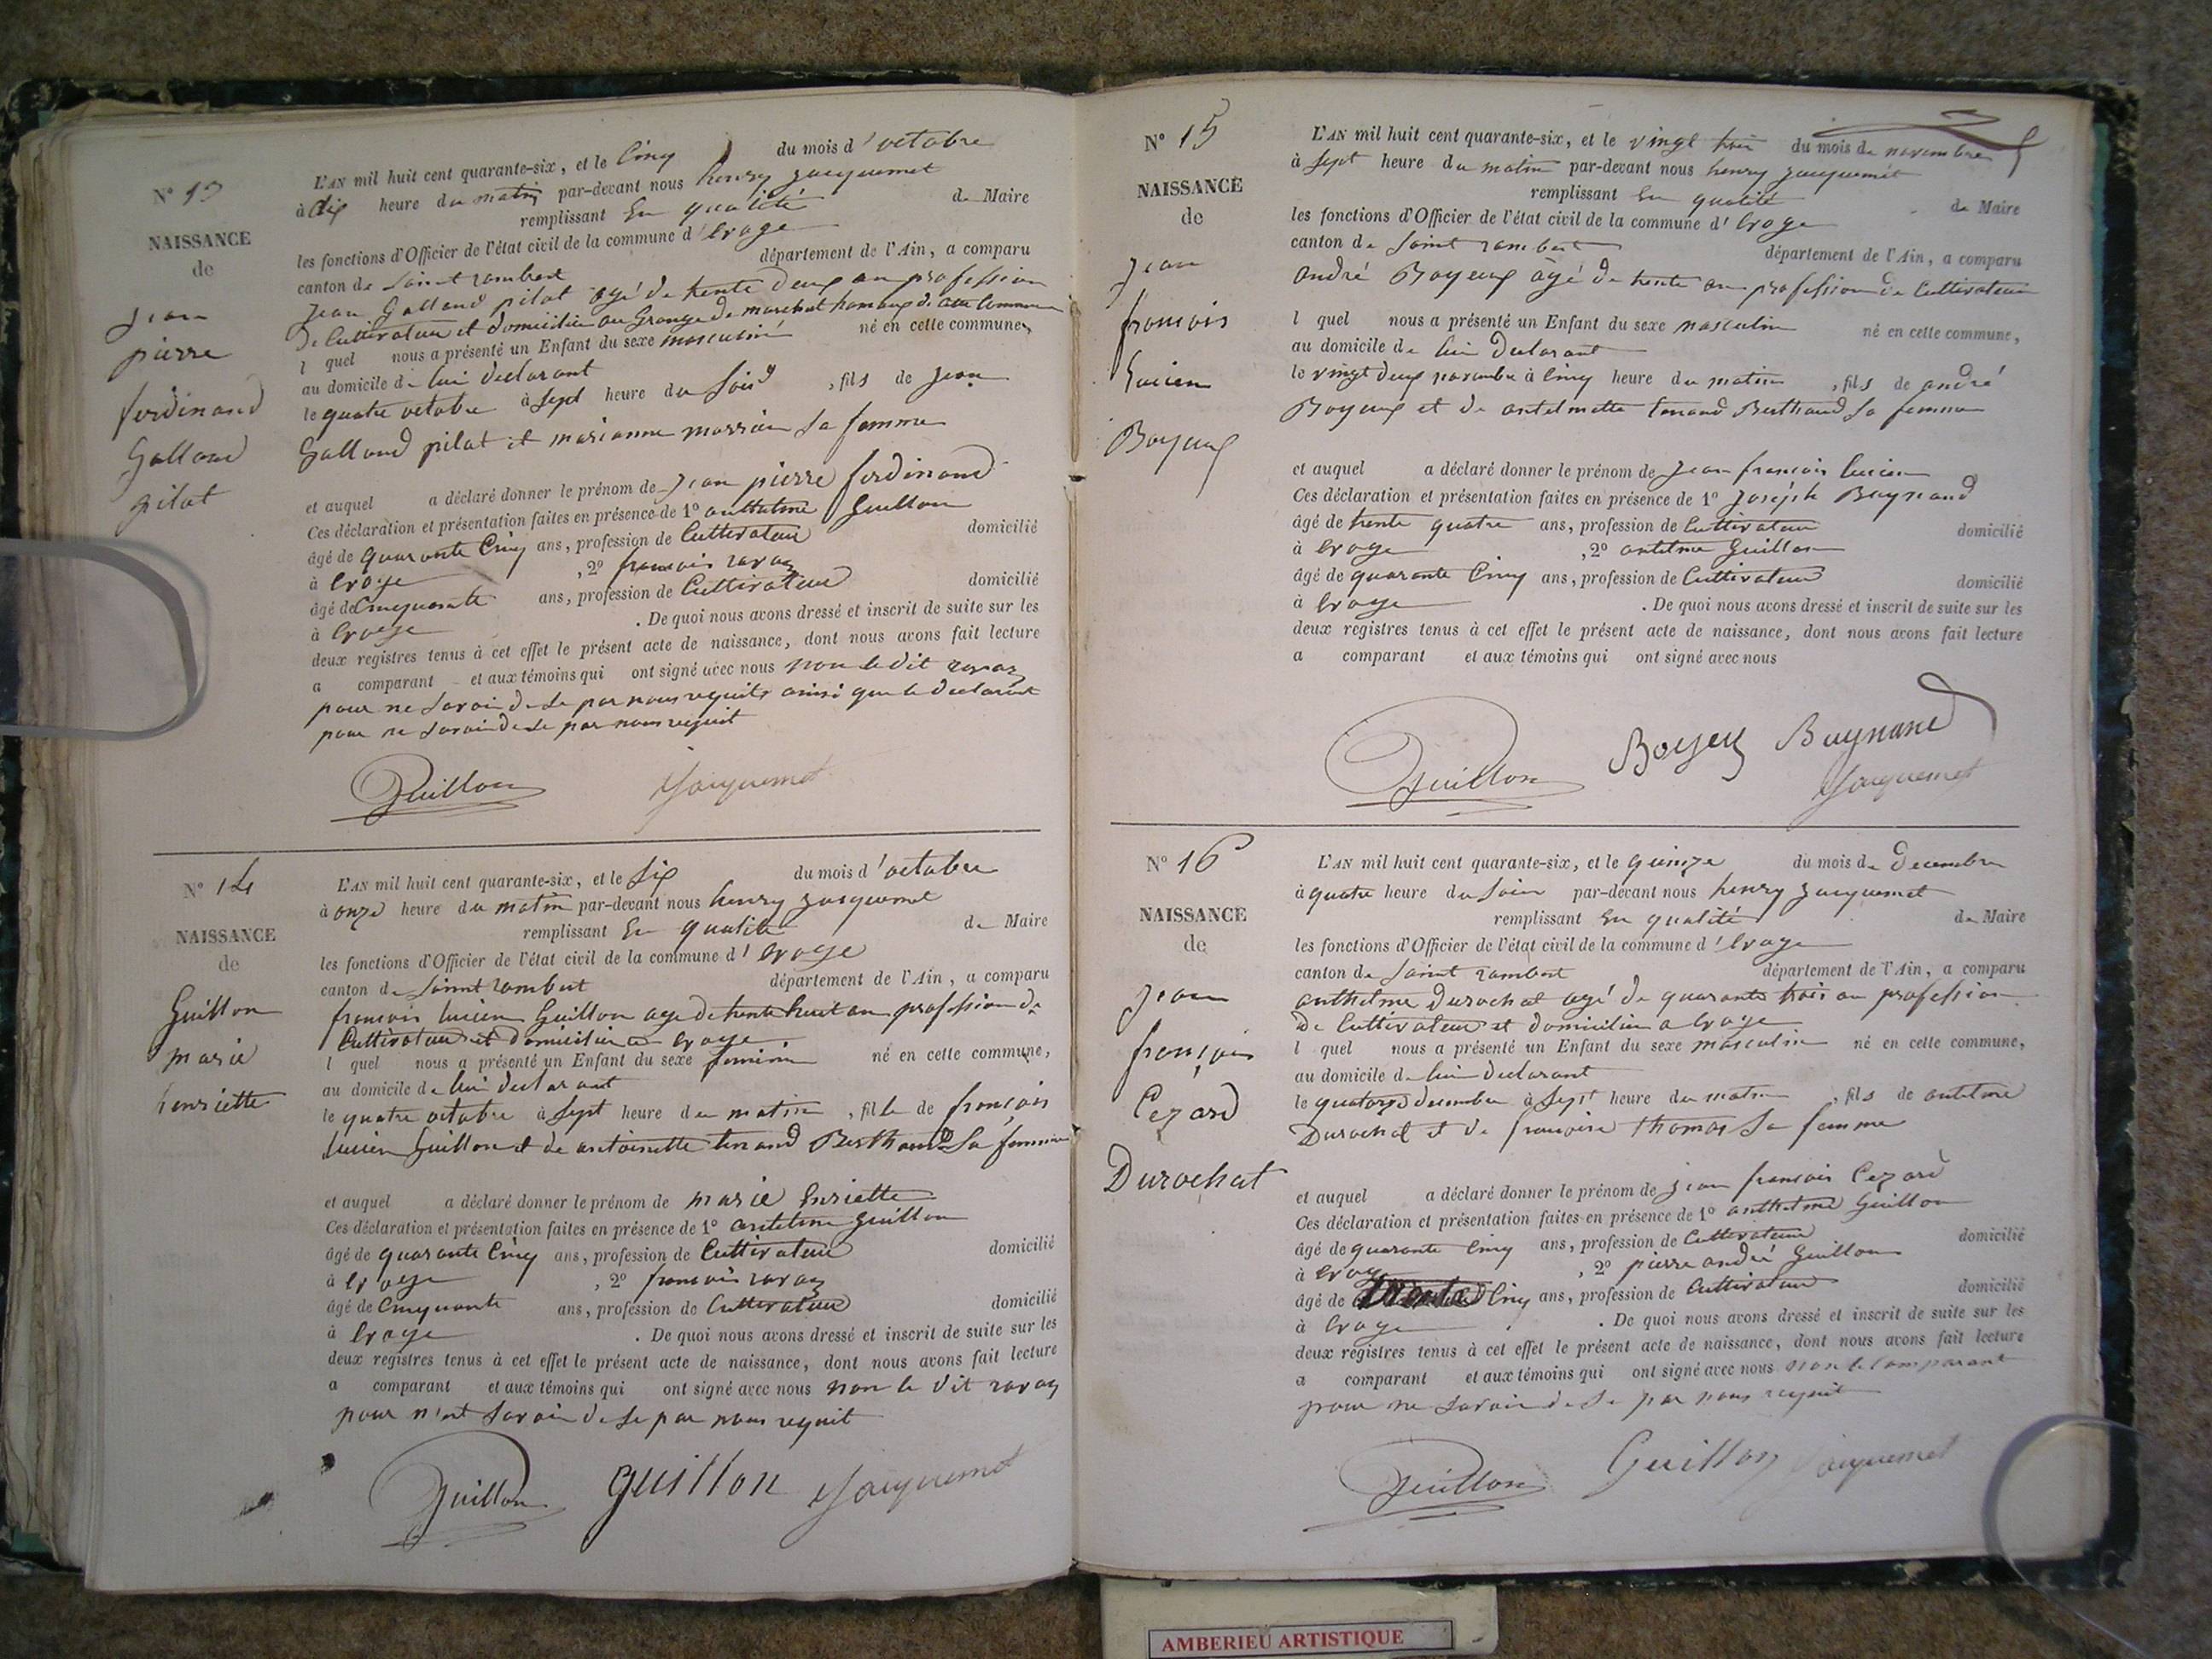 N° 13
NAISSANCE
de
Jean
pierre
ferdinand
Galland
pilat
L'AN mil huit cent quarante-six, et le Cinq du mois d'octobre
à dix heure du matin par-devant nous henry Jacquemet
remplissant En qualité de Maire
les fonctions d'Officier de l'état civil de la commune d'Evoge
canton de Saint rambert département de l'Ain, a comparu
Jean Galland pilat agé de trente deux an profession
De Cultivateur et domicilier au Grange de de cette Commune
l quel nous a présenté un Enfant du sexe masculin né en cette commune,
au domicile de lui declarant
le quatre octobre à Sept heure du Soir, fils de Jean
Galland pilat et marianne Sa femme
et auquel a déclaré donner le prénom de Jean pierre ferdinand
Ces déclaration et présentation faites en présence de 1° anthelme Guillon
âgé de quarante Cinq ans, profession de Cultivateur domicilié
à Evoge, 2° francois ravaz
âgé de Cinquante ans, profession de Cultivateur domicilié
à Evoge. De quoi nous avons dressé et inscrit de suite sur les
deux registres tenus à cet effet le présent acte de naissance, dont nous avons fait lecture
a comparant et aux témoins qui ont signé avec nous non le dit ravaz
pour ne Savoir de Se par nous requits ainsi que le declarant
pour ne Savoir de Se par nous requit
Guillon Jacquemet
N° 14
NAISSANCE
de
Guillon
marie
henriette
L'AN mil huit cent quarante-six, et le Six du mois d'octobre
à onze heure du matin par-devant nous henry Jacquemet
remplissant En qualité de Maire
les fonctions d'Officier de l'état civil de la commune d'Evoge
canton de Saint rambert département de l'Ain, a comparu
francois lucien Guillon age de trente huit an profession de
Cultivateur et domicilier a Evoge
l quel nous a présenté un Enfant du sexe feminin né en cette commune,
au domicile de lui declarant
le quatre octobre à Sept heure du matin, fille de françois
lucien Guillon et de antoinette tenand Berthand Sa femme
et auquel a déclaré donner le prénom de marie henriette
Ces déclaration et présentation faites en présence de 1° antelme Guillon
âgé de quarante Cinq ans, profession de Cultivateur domicilié
à Evoge, 2° francois ravaz
âgé de Cinquante ans, profession de Cultivateur domicilié
à Evoge. De quoi nous avons dressé et inscrit de suite sur les
deux registres tenus à cet effet le présent acte de naissance, dont nous avons fait lecture
a comparant et aux témoins qui ont signé avec nous non le dit ravaz
pour n'et Savoir de Se par nous requit
Guillon Guillon Jacquemet
N° 15
NAISSANCE
de
Jean
francois
Lucien
Boyeux
L'AN mil huit cent quarante-six, et le vingt trois du mois de novembre
à Sept heure du matin par-devant nous henry Jacquemet
remplissant En qualité de Maire
les fonctions d'Officier de l'état civil de la commune d'Evoge
canton de Saint rambert département de l'Ain, a comparu
andré Boyeux âgé de trente an profession de Cultivateur
l quel nous a présenté un Enfant du sexe masculin né en cette commune,
au domicile de lui declarant
le vingt deux novembre à Cinq heure du matin, fils de andré
Boyeux et de antelmette tenand Berthand Sa femme
et auquel a déclaré donner le prénom de Jean francois lucien
Ces déclaration et présentation faites en présence de 1° Joséph Buynand
âgé de trente quatre ans, profession de Cultivateur domicilié
à Evoge, 2° antelme Guillon
âgé de quarante Cinq ans, profession de Cultivateur domicilié
à Evoge. De quoi nous avons dressé et inscrit de suite sur les
deux registres tenus à cet effet le présent acte de naissance, dont nous avons fait lecture
a comparant et aux témoins qui ont signé avec nous
Guillon Boyeux Buynand
Jacquemet
N° 16
NAISSANCE
de
Jean
françois
Cezard
Durochat
L'AN mil huit cent quarante-six, et le quinze du mois de decembre
à quatre heure du Soir par-devant nous henry Jacquemet
remplissant En qualité de Maire
les fonctions d'Officier de l'état civil de la commune d'Evoge
canton de Saint rambert département de l'Ain, a comparu
anthelme Durochat agé de quarante trois an profession
de Cultivateur et domicilier a Evoge
l quel nous a présenté un Enfant du sexe masculin né en cette commune,
au domicile de lui declarant
le quatorze decembre à Sept heure du matin, fils de antelme
Durochat et de francoise thomas Sa femme
et auquel a déclaré donner le prénom de Jean francois Cezard
Ces déclaration et présentation faites en présence de 1° anthelme Guillon
âgé de quarante Cinq ans, profession de Cultivateur domicilié
à Evoge, 2° pierre andré Guillon
âgé de trente Cinq ans, profession de Cultivateur domicilié
à Evoge. De quoi nous avons dressé et inscrit de suite sur les
deux registres tenus à cet effet le présent acte de naissance, dont nous avons fait lecture
a comparant et aux témoins qui ont signé avec nous non le Comparant
pour ne Savoir de Se par nous requit
Guillon Guillon Jacquemet
AMBERIEU ARTISTIQUE